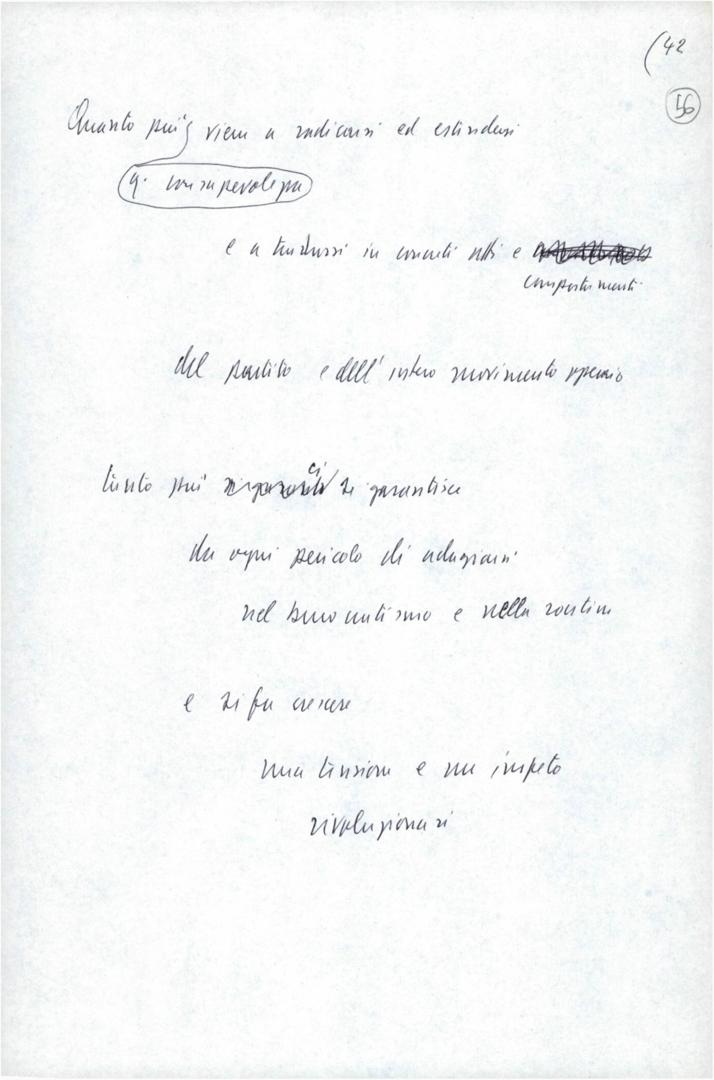 (42
56
Quanto più viene a radicarsi ed estendersi
q. consapevolezza
e a tradursi in concreti atti e
comportamenti
del partito e dell'intero movimento operaio
tanto più ci si garantisce
da ogni pericolo di adagiarsi
nel burocratismo e nella routine
e si fa crescere
una tensione e un impeto
rivoluzionari